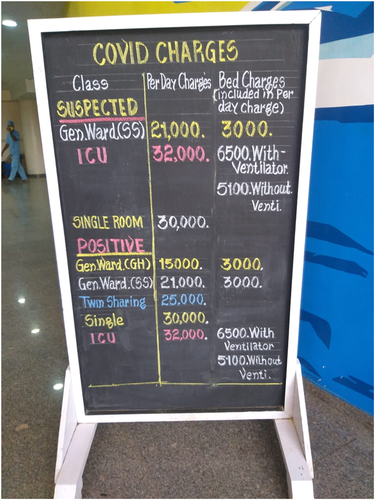 COVID CHARGES
Class Per Day Charges Bed Charges
(included in Per
day charge)
SUSPECTED
Gen.Ward.(SS) 21,000. 3000.
ICU 32,000. 6500.With-
Ventilator.
5100.Without
Venti.
SINGLE ROOM 30,000.
POSITIVE
Gen.Ward.(GH) 15000. 3000.
Gen.Ward.(SS) 21,000. 3000.
Twin Sharing 25.000.
Single 30,000.
ICU 32,000. 6500.With
Ventilator
5100.Without
Venti.